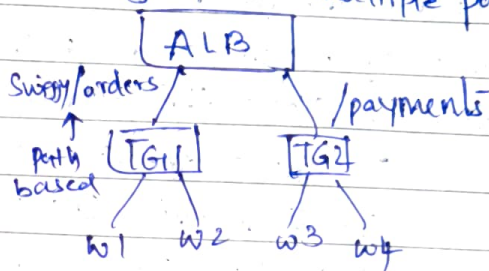 ALB
Swiggy/orders
/payments
path
based
TG1
TG2
w1 w2 w3 w4